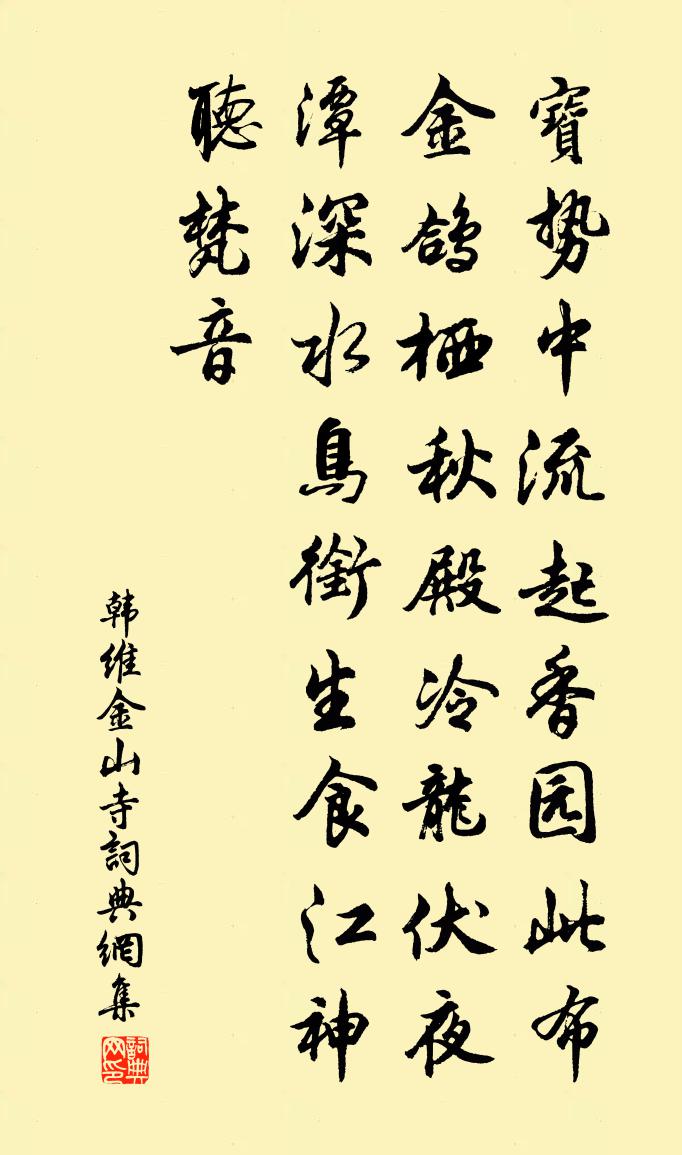 寶势中流起香园此布
金鸽栖秋殿冷龍伏夜
潭深水鳥銜生食江神
聽梵音
韩维金山寺詞典網集
詞典网印